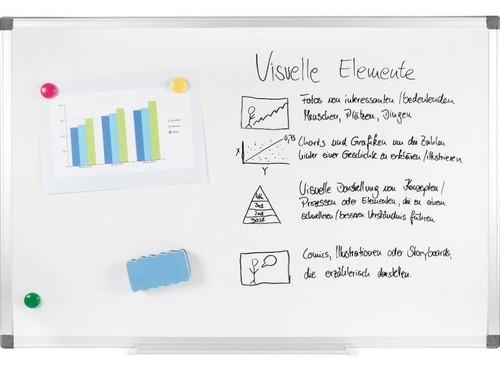 Visuelle Elemente
Fotos von interessanten/bedeutenden
Menschen, Plätzen, Dingen
0,75
X
Y
Charts und Grafiken um die Zahlen
hinter einer Geschichte zu erklären/illustrieren
Visuelle Darstellung von Konzepten/
Prozessen oder Elementen, die zu einem
schnelleren/besseren Verständnis führen.
4th
3rd
2nd
Base
Comics, Illustrationen oder Storyboards,
die erzählerisch darstellen.